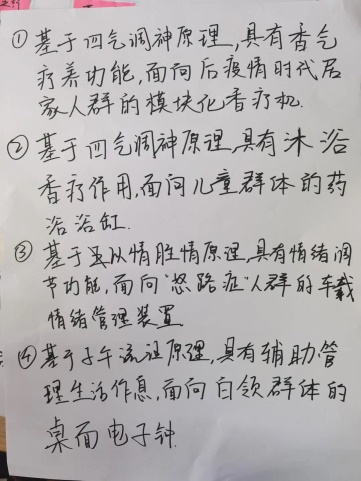 ①基于四气调神原理,具有香气
疗养功能,面向后疫情时代居
家人群的模块化香疗机.
②基于四气调神原理,具有沐浴
香疗作用,面向儿童群体的药
浴浴缸.
③基于以情胜情原理,具有情绪调
节功能,面向"怒路症"人群的车载
情绪管理装置
④基于子午流注原理,具有辅助管
理生活作息,面向白领群体的
桌面电子钟.